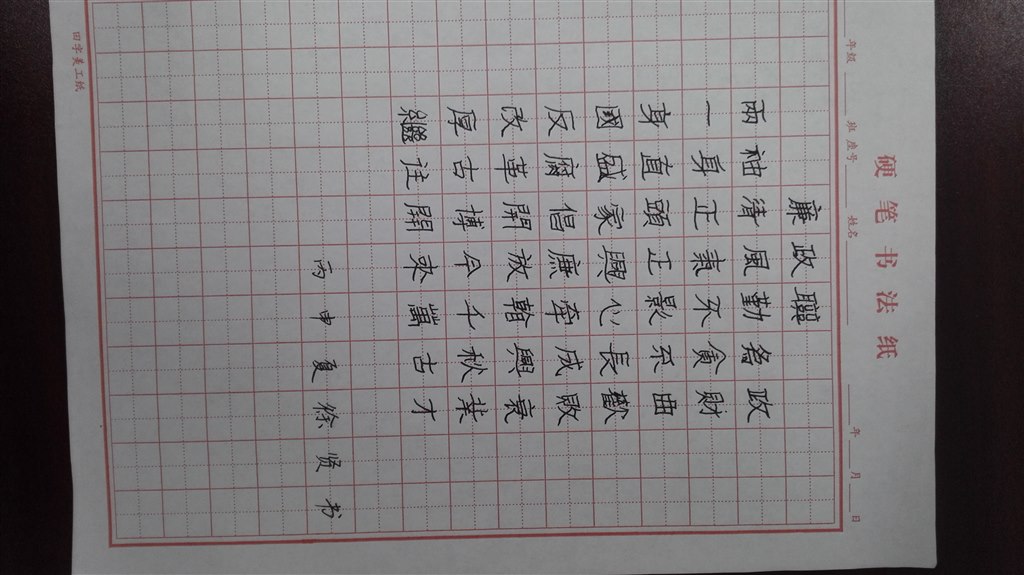 硬笔书法纸
年级 班 座号 姓名 年 月 日
廉政聯
兩袖清風勤務政
一身正氣不貪財
身直頭正影不曲
國盛家興心長歡
反腐倡廉牽成敗
改革開放斡興衰
厚古博今千秋業
繼往開來萬古才
丙申夏徐贤书
田字美工纸